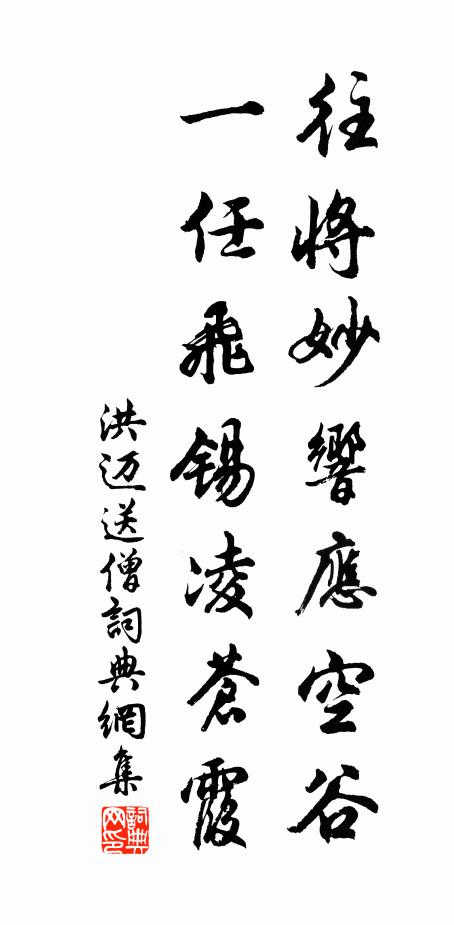 往將妙響應空谷
一任飛錫凌蒼霞
洪迈送僧詞典網集
詞典网印